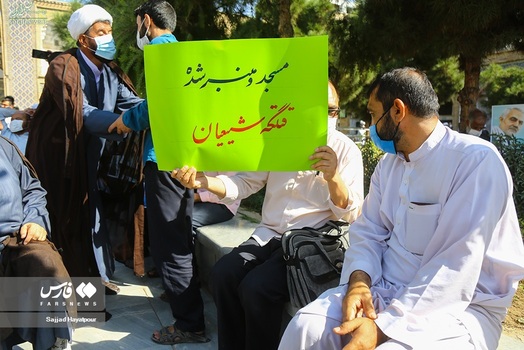 مسجد و منبر شده
قتلگه شیعیان
فارس
FARSNEWS
Sajjad Hayatpour